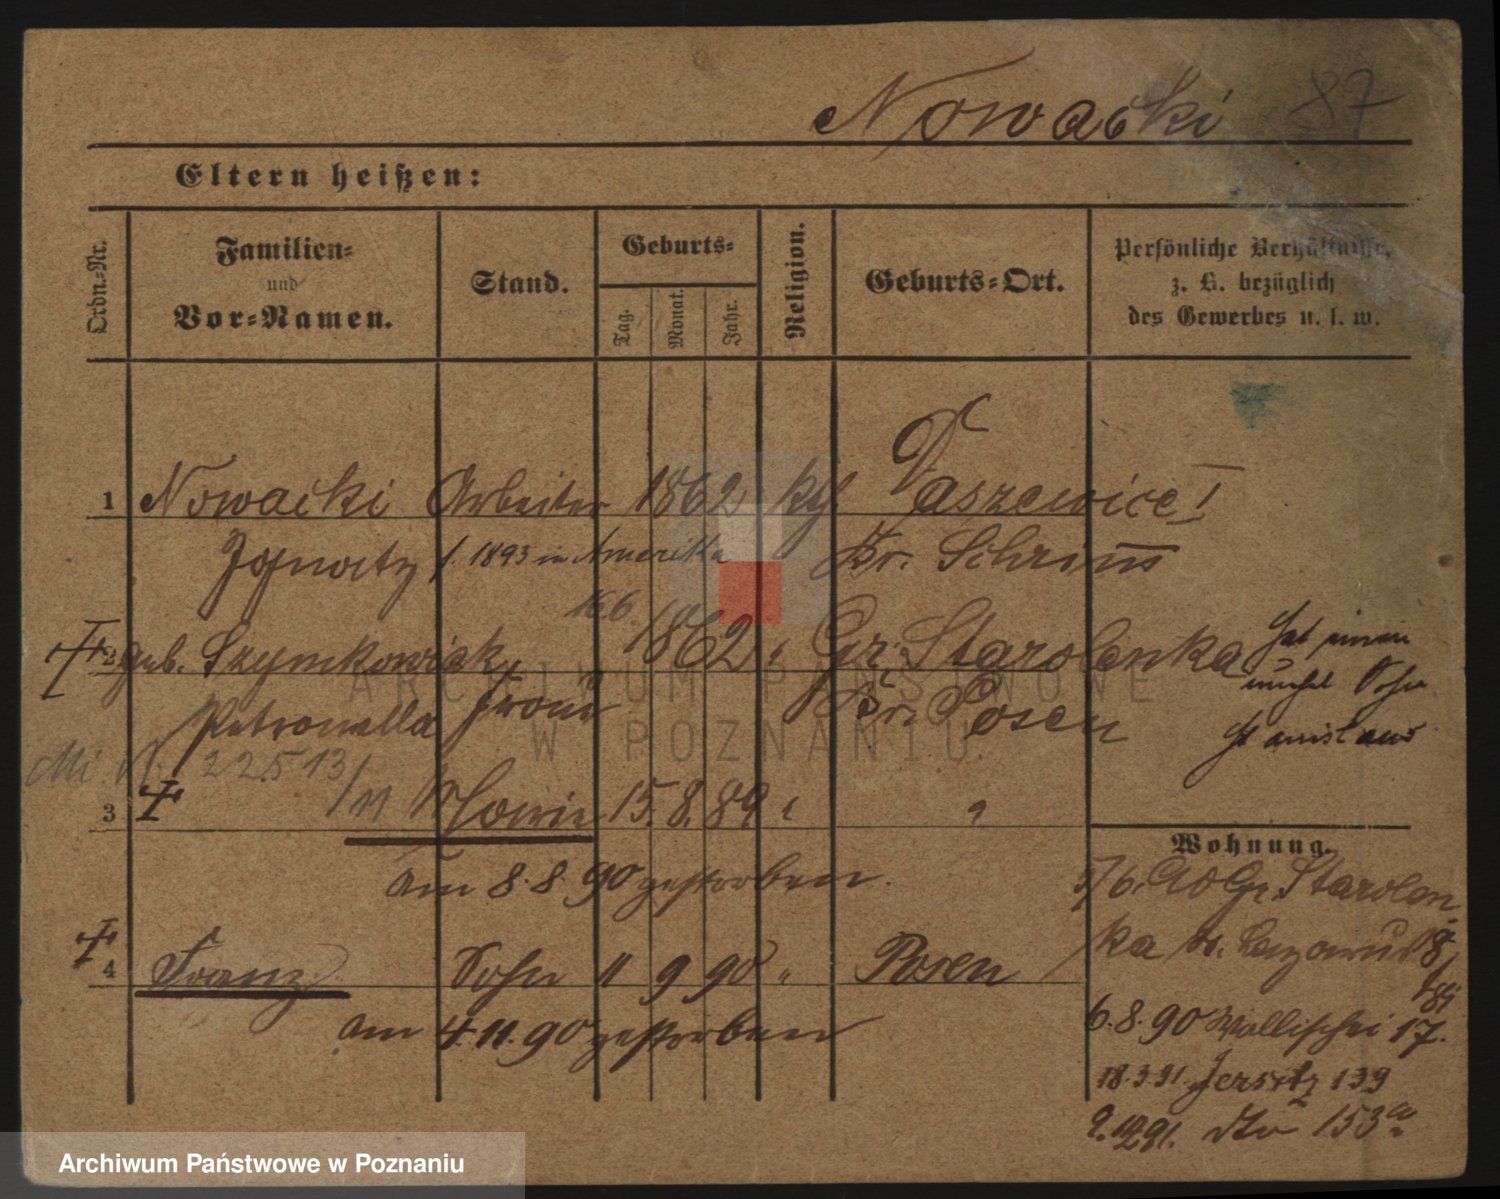 Nowacki 87
Eltern heißen:
Ordn.-Nr.
Familien-
und
Vor-Namen.
Stand.
Geburts-
Tag.
Monat.
Jahr.
Religion.
Geburts-Ort.
Persönliche Verhältnisse,
z. B. bezüglich
des Gewerbes u. s. w.
1 Nowacki Arbeiter 1862 kth. Daszewice I
Ignatz 1893 in Amerika Kr. Schrimm
16.6.
2 geb. Szymkowiak 1862 " Gr. Starolenka
Petronella Frau Kr. Posen
Hat einen
unehel Sohn
Stanislaus
22513/11
3 Marie 15. 8. 89 "
am 8.8.90 gestorben
4 Franz Sohn 11 9 90 " Posen
am 4.11.90 gestorben
Wohnung.
Gr. Starolen
ka n. Lazarus 18
6.8.90 Wallischei 17.
18.3.91. Jersitz 139
dto 153a
ARCHIWUM PAŃSTWOWE
W POZNANIU
Archiwum Państwowe w Poznaniu